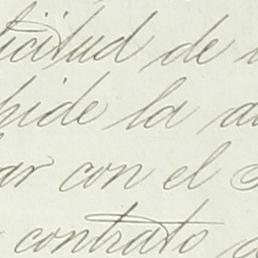 licitud de
pide la
ar con el
contrato